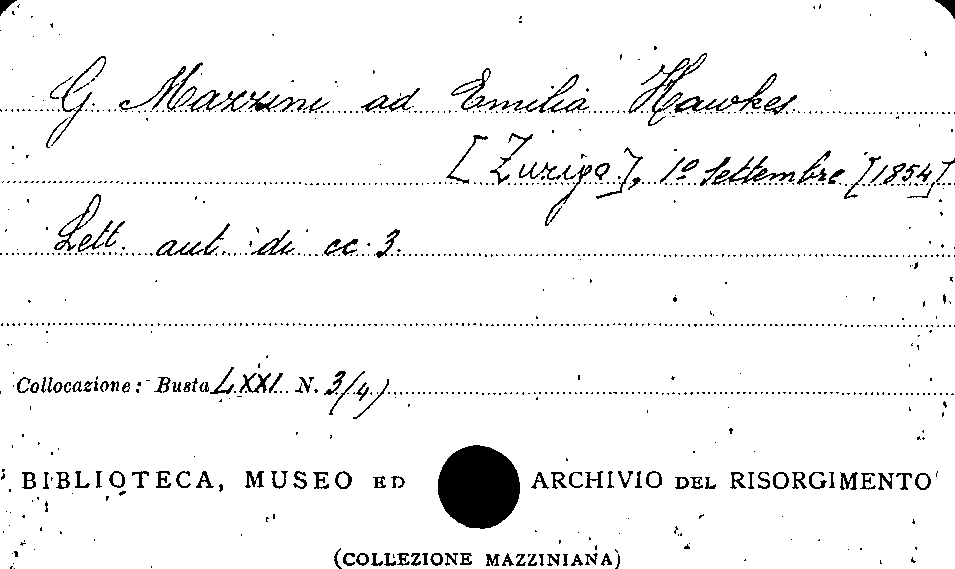 G. Mazzini ad Emilia Hawkes
[Zurigo], 1º settembre [1854]
Lett. aut. di cc. 3.
Collocazione: Busta LXXI N. 3/4)
BIBLIOTECA, MUSEO ED ARCHIVIO DEL RISORGIMENTO
(COLLEZIONE MAZZINIANA)